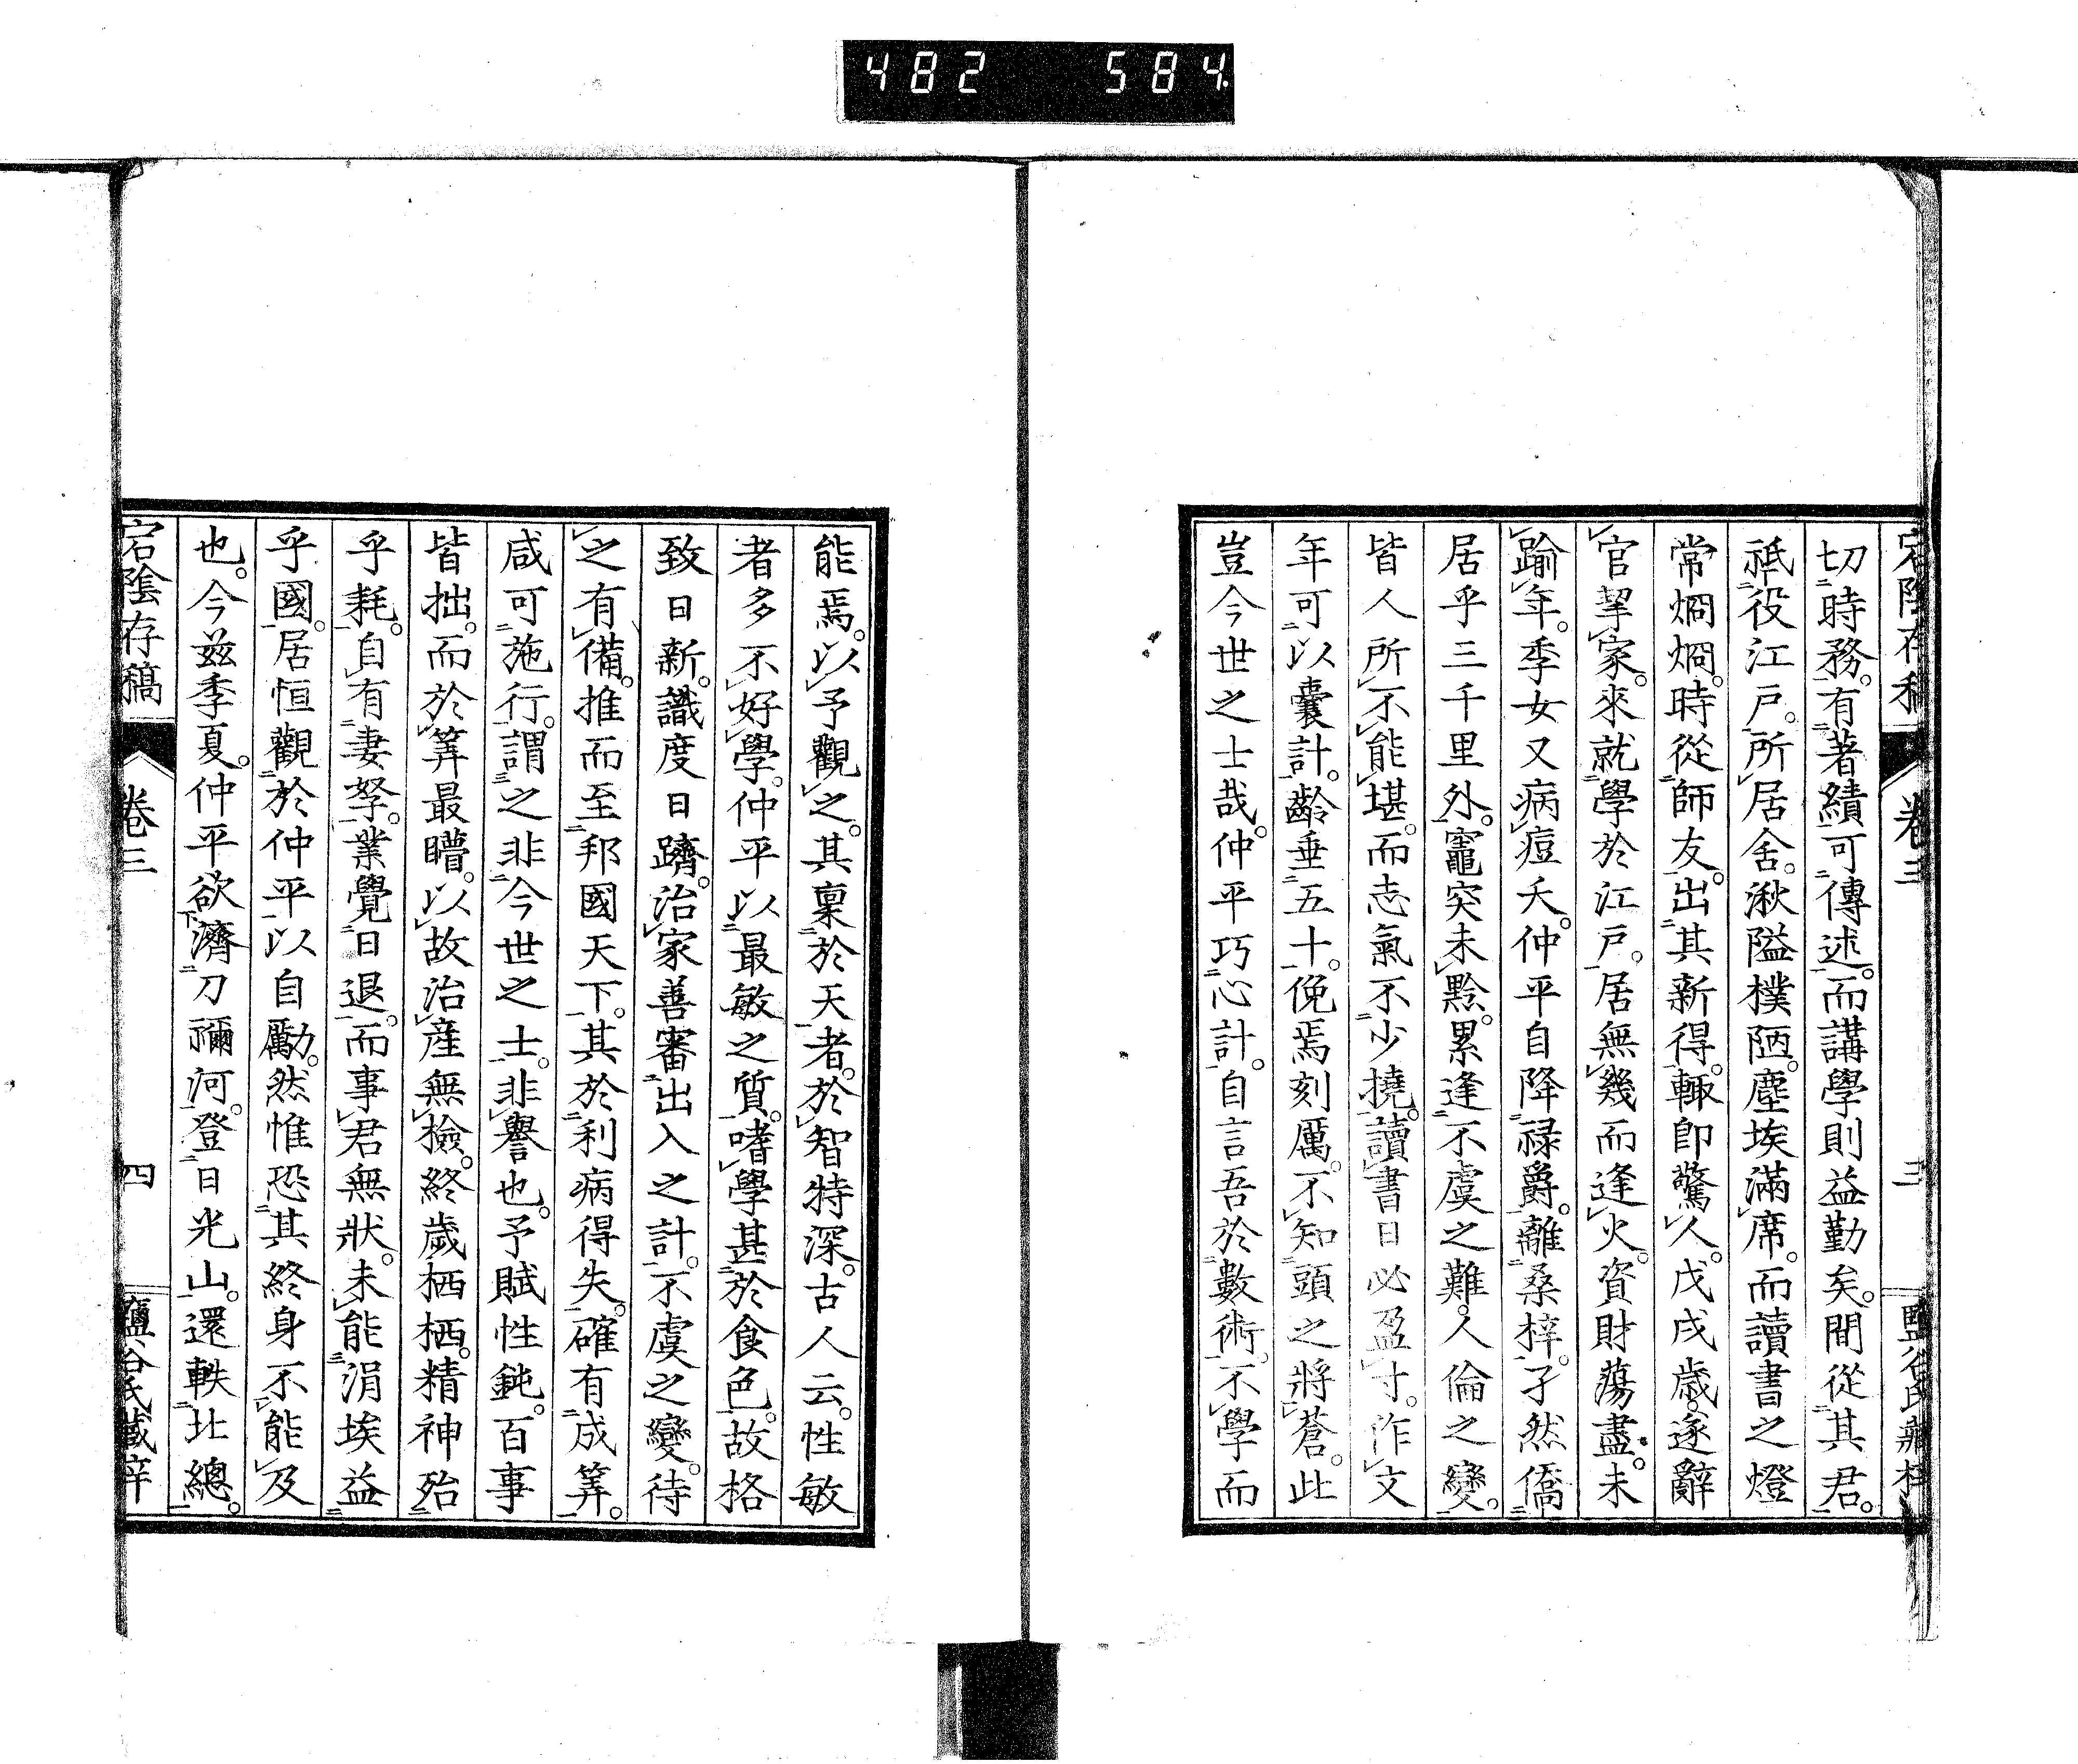 482 584
宕陰存稿 卷三 三 鹽谷氏藏梓
切時務。有著績可傳述。而講學則益勤矣。間從其君。
祗役江戶。所居舍。湫隘樸陋。塵埃滿席。而讀書之燈
常烱烱。時從師友。出其新得。輙卽驚人。戊戌歲。遂辭
官挈家。來就學於江戶。居無幾而逢火。資財蕩盡。未
踰年。季女又病痘夭。仲平自降祿爵。離桑梓。孑然僑
居乎三千里外。竈突未黔。累逢不虞之難。人倫之變。
皆人所不能堪。而志氣不少撓。讀書日必盈寸。作文
年可以囊計。齡垂五十。俛焉刻厲。不知頭之將蒼。此
豈今世之士哉。仲平巧心計。自言吾於數術。不學而
能焉。以予觀之。其稟於天者。於智特深。古人云。性敏
者多不好學。仲平以最敏之質。嗜學甚於食色。故格
致日新。識度日躋。治家善審出入之計。不虞之變。待
之有備。推而至邦國天下。其於利病得失。確有成筭。
咸可施行。謂之非今世之士。非譽也。予賦性鈍。百事
皆拙。而於筭最瞢。以故治產無檢。終歲栖栖。精神殆
乎耗。自有妻孥。業覺日退。而事君無狀。未能涓埃益
乎國。居恒觀於仲平以自勵。然惟恐其終身不能及
也。今茲季夏。仲平欲濟刀禰河。登日光山。還軼北總。
宕陰存稿 卷三 四 鹽谷氏藏梓